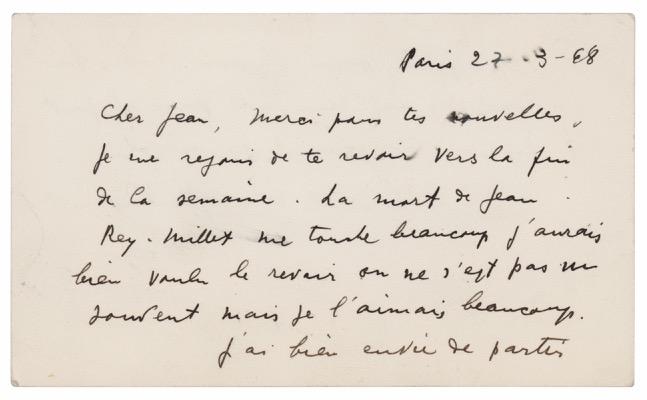 Paris 27-3-68
Cher Jean, Merci pour tes nouvelles,
je me rejouis de te revoir vers la fin
de la semaine. La mort de Jean
Rey-Millet me touche beaucoup j'aurais
bien voulu le revoir on ne s'est pas vu
souvent mais je l'aimais beaucoup.
j'ai bien envie de partir